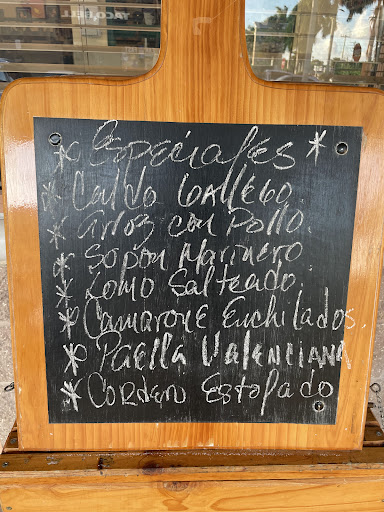 * Especiales *
* Caldo GALLEGO
* Arroz con Pollo.
* Sopon Marinero.
* Lomo Salteado.
* Camarone Enchilados.
* Paella Valenciana
* Cordero Estofado